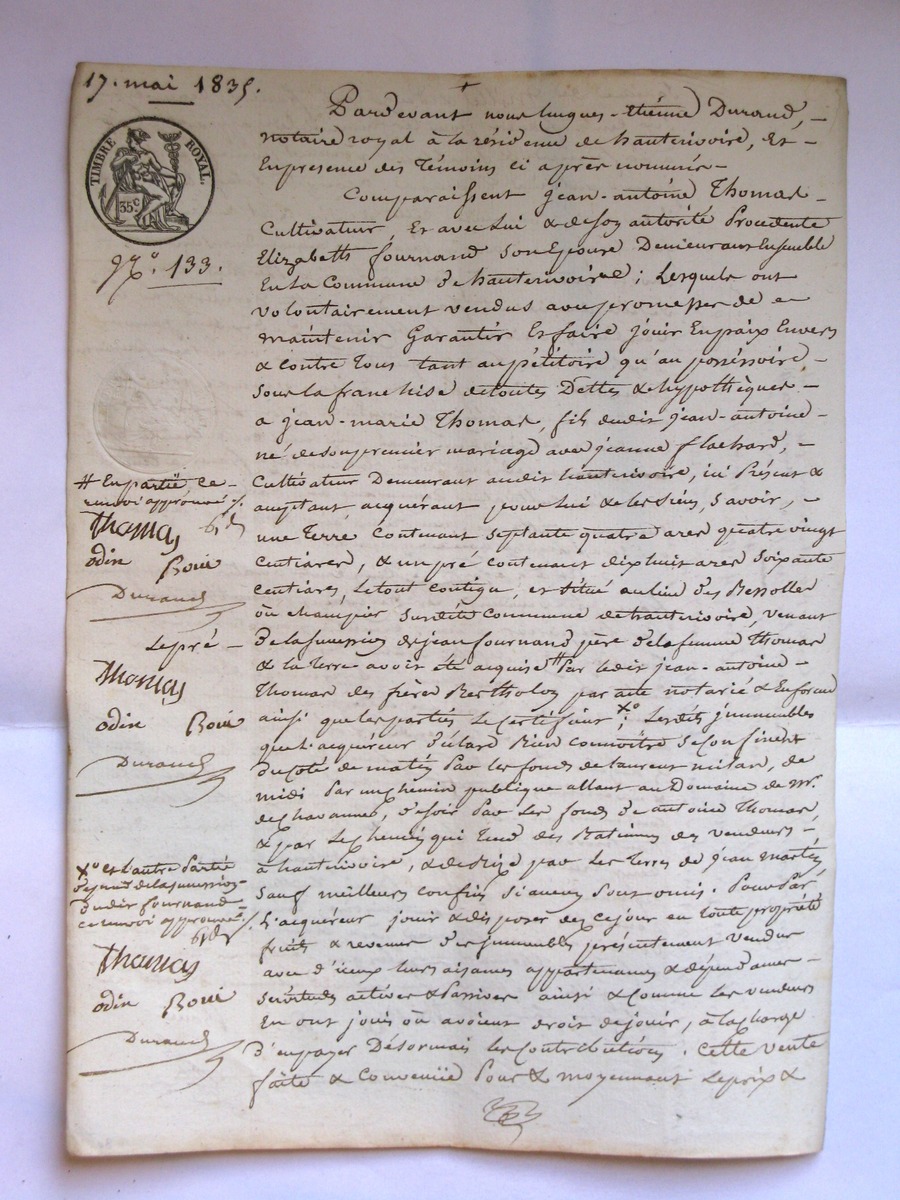 17. mai 1835.
TIMBRE ROYAL.
35 c.
N.º 133.
Pardevant nous hugues-étiénne Durand,
notaire royal à la résidence de hauterivoire, Et
En présence des Témoins ci après nommés
Comparaissent jean-antoine Thomas
Cultivateur, Et avec Lui & de son autorité Procédente
Elizabeth fournand son Epouse Demeurant Ensemble
En La Commune de hauterivoire; Lesquels ont
volontairement vendus avec promesses de
maintenir Garantir Et faire jouir En paix Envers
& Contre Tous tant au pétitoire qu'au posséssoire
sous la franchise de toutes Dettes & hypothèques
a jean-marie Thomas, fils dudit jean-antoine
né de son premier mariage avec jeanne flachard,
Cultivateur Demeurant audit hauterivoire, ici Présent &
acceptant acquérant pour Lui & les siens, Savoir,
une Terre Contenant Septante quatre ares quatre vingt
Centiares, & un pré contenant dix huit ares Soixante
Centiares, Le tout contigu, et Situé au lieu des
ou champier susdite Commune de hauterivoire, venant
de la succession de jean fournand père de la femme Thomas
& la Terre avoir été acquise # Par ledit jean-antoine
Thomas des frères Bertholon par acte notarié & En forme
ainsi que les parties Le Certifient Xº; Lesdits jmmeubles
que L'acquéreur déclare Bien Connoître Se Confinent
du Coté de matin Par les fonds de Laurent milan, de
midi Par un chemin publique allant au Domaine de mr.
de chavannes, de soir Par Les fonds de antoine Thomas,
& par Le chemin qui Tend des Batiments des vendeurs
à hauterivoire, & de Bize par Les Terres de jean
Sauf meilleurs confins Si aucuns Sont omis. Pour Par
L'acquéreur jouir & disposer dès ce jour en toute propriété
fruits & revenus des jmmeubles présentement vendus
avec d'iceux leurs aisances appartenances & dépendances
Servitudes actives & Passives ainsi & Comme les vendeurs
En ont jouis ou avoient droit de jouir, à la charge
d'en payer Désormais les Contributions. Cette vente
faite & Convenue Pour & moyennant Le prix &
# En partie ce
renvoi approuvé
Thomas
odin Boui
Durand
Le pré
Thomas
odin Boui
Durand
Xº et L'autre Partie
de la succession
dudit fournand
ce renvoi approuvé
Thomas
odin Boui
Durand